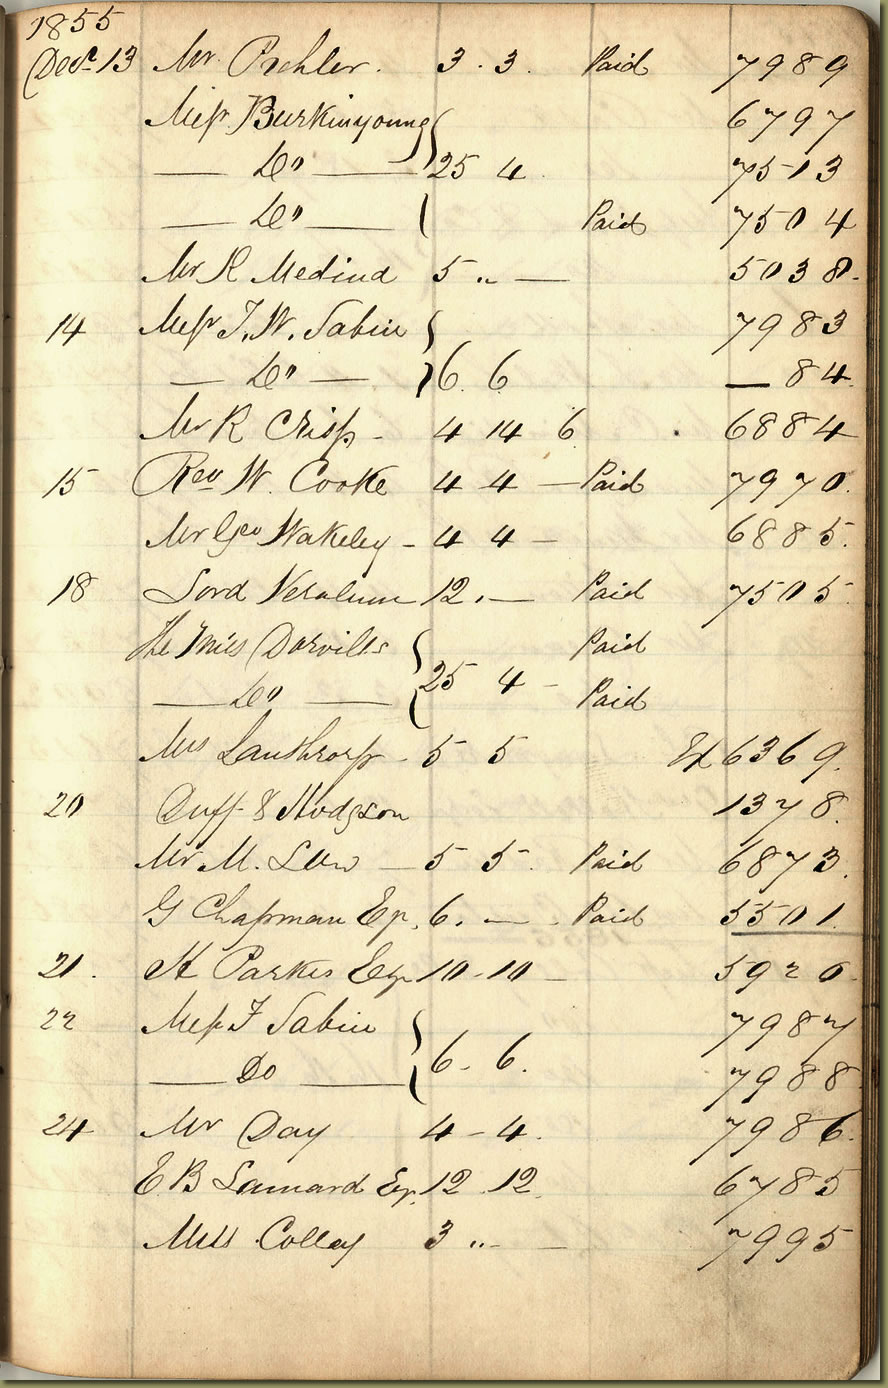 1855
Decr 13 Mr Pschler. 3. 3. Paid 7989
Miss Burkinyoung 6797
— Do — 25 4 7513
— Do — Paid 7504
Mr R Medina 5 „ — 5038.
14 Messr T. W. Sabin 7983
— Do — 6. 6 — 84.
Mr R Crisp - 4 14 6 6884
15 Rev W. Cooke 4 4 — Paid 7970.
Mr Geo Wakeley - 4 4 - 6885.
18 Lord Verulum 12. — Paid 7505
The Miss Dorvills Paid
— Do — 25 4 - Paid
Mrs Lansthrop - 5 5 Ex 6369.
20 Duff & Hodgson 1378.
Mr M. — 5 5. Paid 6873.
G Chapman Esq. 6. — Paid 5501.
21. H Parkes Esq 10-10 - 5920.
22 Messr F Sabin 7987
— Do — 6. 6. 7988
24 Mr Day 4 - 4. 7986.
E B Esq. 12 12. 6785
Miss Colley 3 „ - 7995